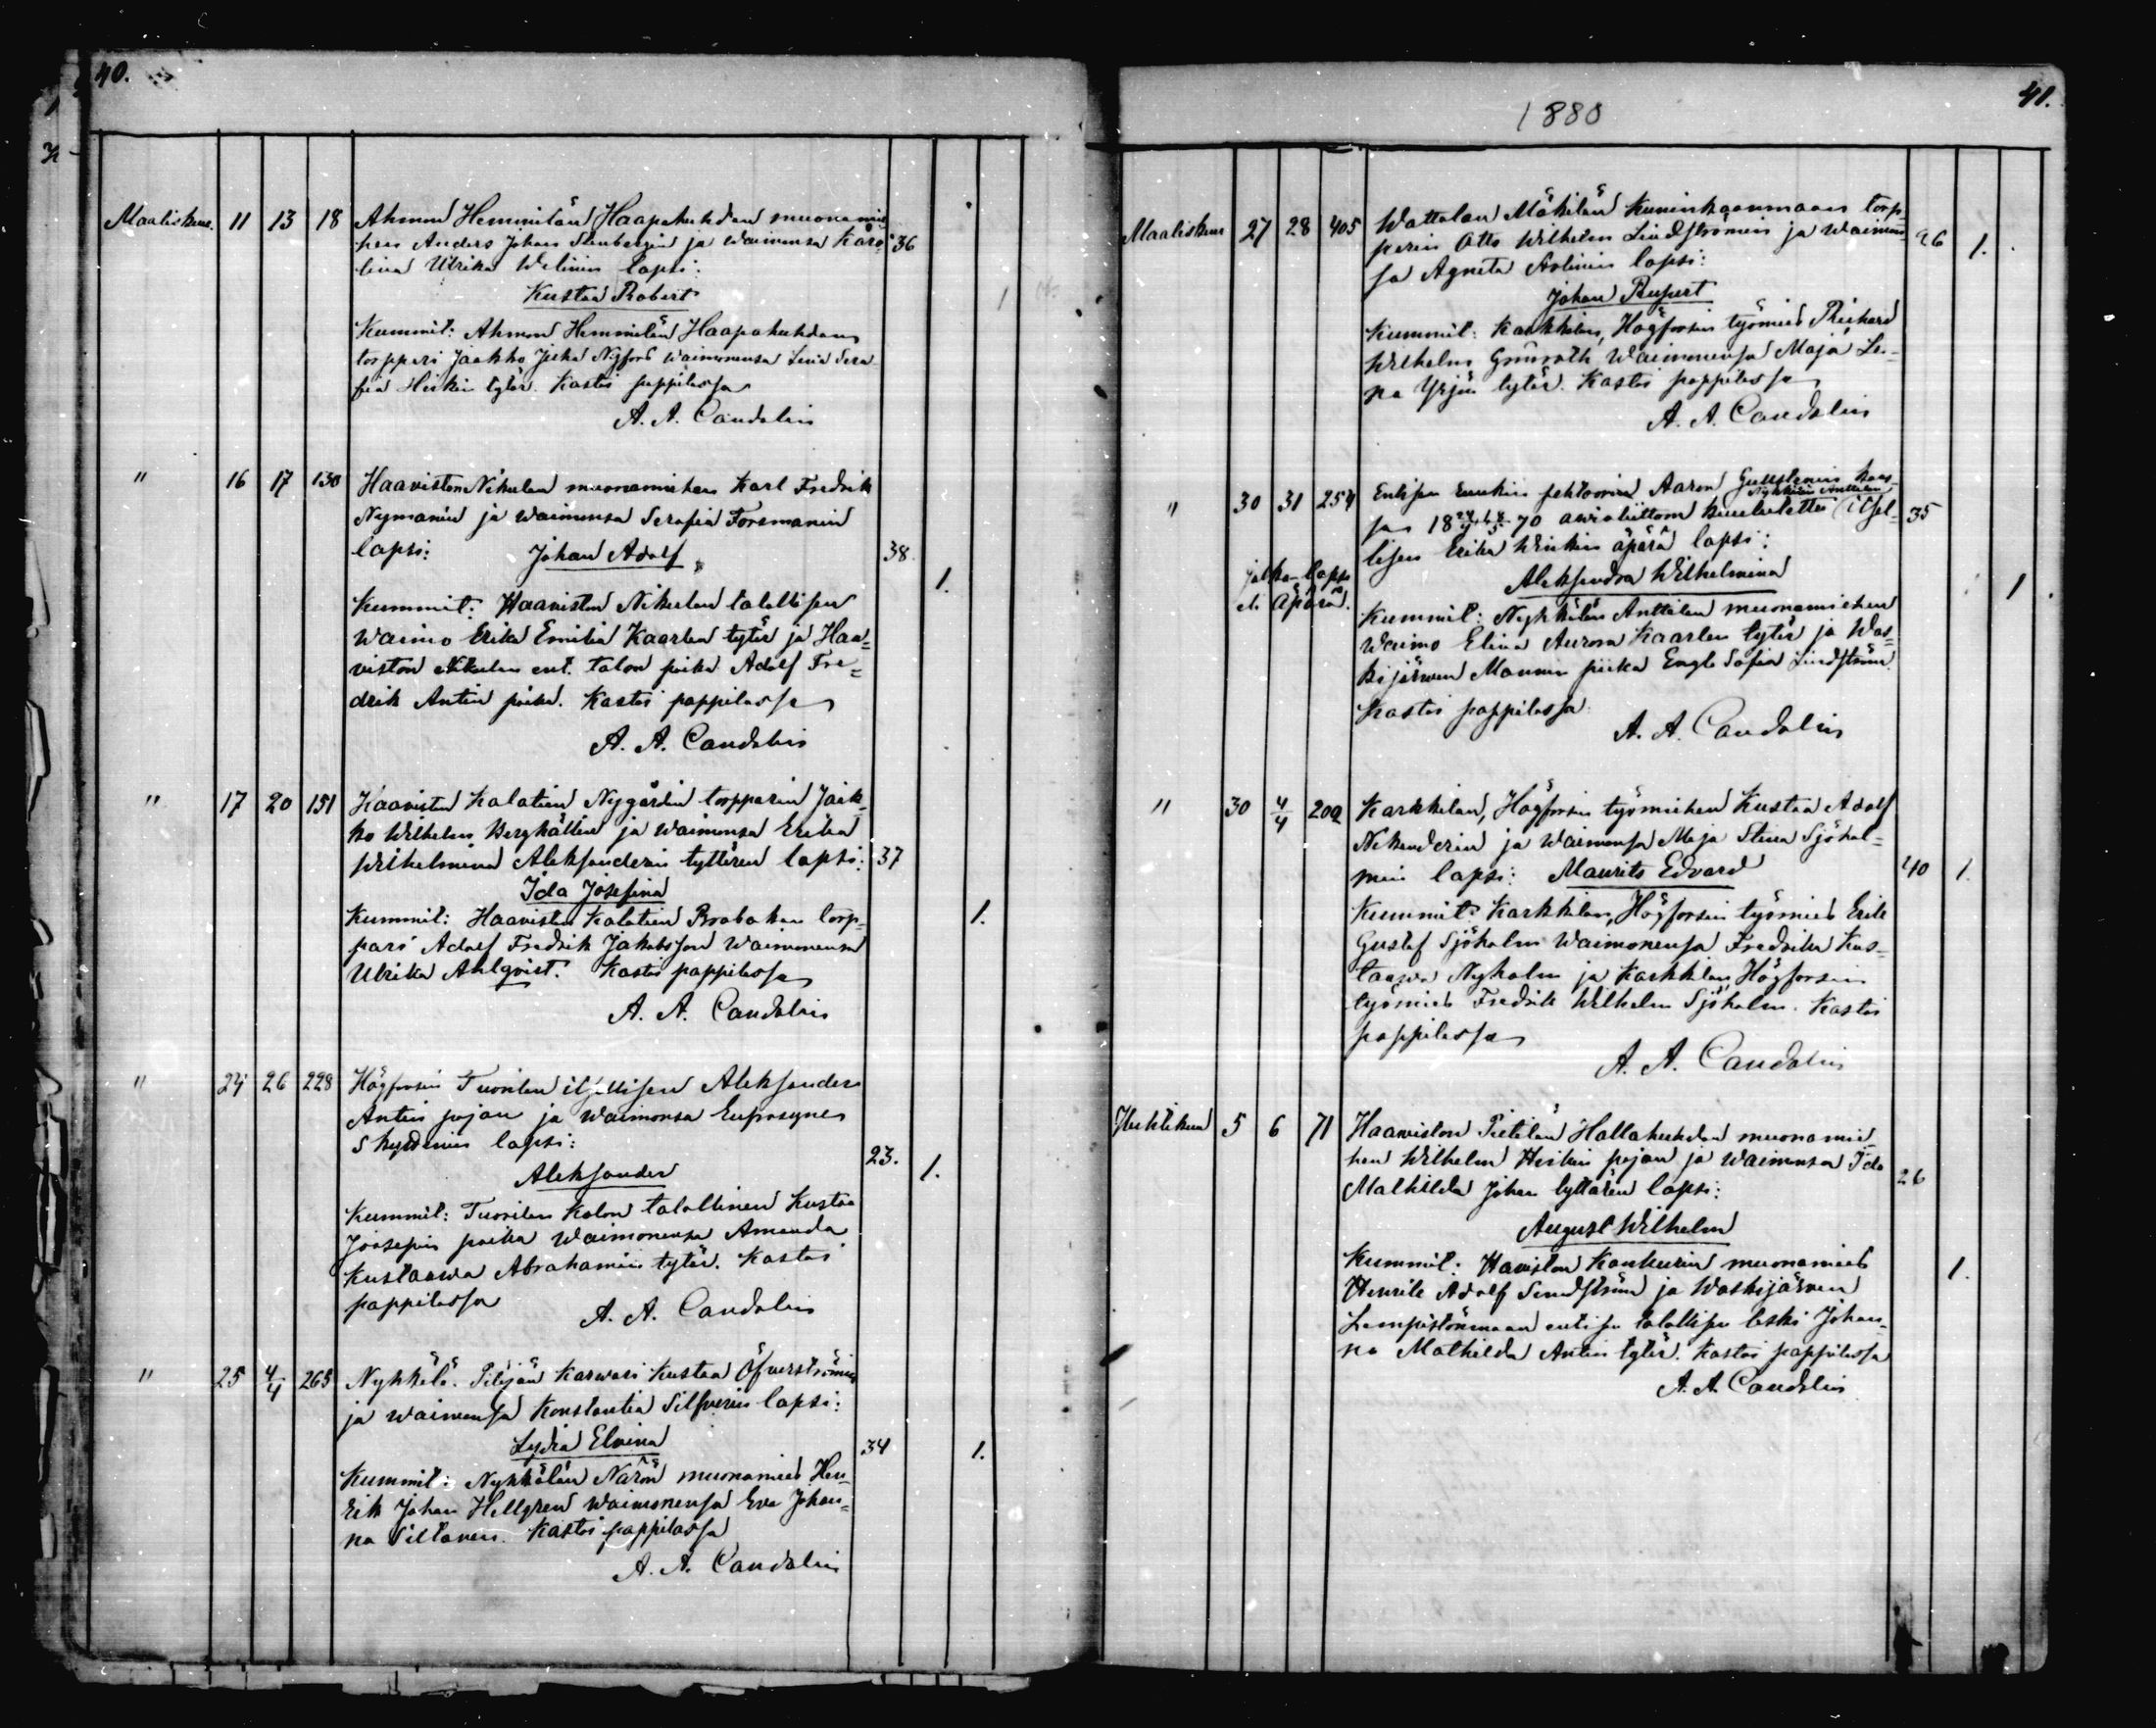 40.
Maaliskuu. 11 13 18 Ahmon Hemmilän Haapakuhdan muonamie-
hen Anders Johan Stenbergin ja waimonsa Karo- 36
lina Ulrika Welinin lapsi:
Kustaa Robert
Kummit: Ahmon Hemmilän Haapakuhdan
torppari Jaakko Juha Nyfors waimonensa Lena Sera-
fia Heikin tytär. Kasti pappilassa
A. A. Candolin
" 16 17 130 Haaviston Nikulan muonamiehen Karl Fredrik
Nymanin ja waimonsa Serafia Forsmanin
lapsi: Johan Adolf 38.
1.
Kummit: Haaviston Nikulan talollisen
waimo Erika Emilia Kaarlen tytär ja Haa-
viston Nikulan ent. talon poika Adolf Fre-
drik Antin poika. Kastoi pappilassa
A. A. Candolin
" 17 20 151 Haaviston Kalatien Nygårdin torpparin Jaak-
ko Wilhelm Berghällin ja waimonsa Erika
Wilhelmina Aleksanderin tyttären lapsi: 37
Ida Josefina
Kummit: Haaviston Kalatien Brobakan torp- 1.
pari Adolf Fredrik Jakobsson waimonensa
Ulrika Ahlqvist. Kastoi pappilassa
A. A. Candolin
" 24 26 228 Högforsin Tuorilan itsellisen Aleksander
Antin pojan ja waimonsa Euprosyne
lapsi:
23.
Aleksander 1.
Kummit: Tuorilan Kolon talollinen Kustaa
Joosepin poika waimonensa Amanda
Kustaawa Abrahamin tytär. Kastoi
pappilassa A. A. Candolin
" 25 4/4 265 Nyhkälä. Pilijän Karwari Kustaa Öfverströmin
ja waimonsa Konstantia Silfverin lapsi:
Lydia Elvina 34 1.
Kummit: Nyhkälän muonamies Hen-
rik Johan Hellgren waimonensa Eva Johan-
na Siltanen. Kastoi pappilassa
A. A. Candolin
1880
41.
Maaliskuu 27 28 405 Wattolan Mäkilän Kuninkaanmaan torp-
parin Otto Wilhelm Lindströmin ja waimon- 26 1.
sa Agneta lapsi:
Johan Rupert
Kummit: Karkkilan, Högforsin työmies Rickard
Wilhelm Grönroth waimonensa Maja Le-
na Yrjön tytär. Kastoi pappilassa
A. A. Candolin
" 30 31 254 Entisen Aaron
Nyhkälän Anttilan
18 70 awioliitton itsel- 35
lisen Erika äpärä lapsi:
Aleksandra Wilhelmina 1
jalka-lapsi
el. äpärä.
Kummit: Nyhkälän Anttilan muonamiehen
waimo Elina Aurora Kaarlen tytär ja Was-
kijärwen Mannin piika Engla Sofia Lindström.
Kastoi pappilassa.
A. A. Candolin
" 30 4/4 202 Karkkilan, Högforsin työmiehen Kustaa Adolf
Nikanderin ja waimonsa Maja Stina Sjöhol-
min lapsi: Maurits Edvard 40 1.
Kummit: Karkkilan, Högforsin työmies Erik
Gustaf Sjöholm waimonensa Fredrika Kus-
taawa Nyholm ja Karkkilan, Högforsin
työmies Fredrik Wilhelm Sjöholm. Kastoi
pappilassa
A. A. Candolin
Huhtikuu 5 6 71 Haawiston Pietilän Hallakuhdan muonamie-
hen Wilhelm Heikin pojan ja waimonsa Ida
Mathilda Johan tyttären lapsi: 26
August Wilhelm
Kummit: Haviston Kankurin muonamies 1.
Henrik Adolf Sundström ja Waskijärwen
Lempistönmaan entisen talollisen leski Johan-
na Mathilda Antin tytär. Kastoi pappilassa
A. A. Candolin